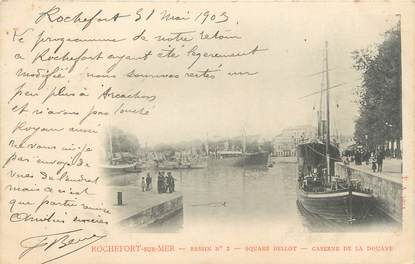 Rochefort 31 Mai 1903
Le programme de notre retour
à Rochefort ayant été légèrement
modifié, nous sommes restés un
peu plus à Arcachon
et n'avons pas touché
Royan aussi
ne vous ai-je
pas envoyé de
vues de l'endroit
mais ce n'est
que partie remise
Amitiés sincères
ROCHEFORT-SUR-MER — BASSIN N° 2 — SQUARE BELLOT — CASERNE DE LA DOUANE